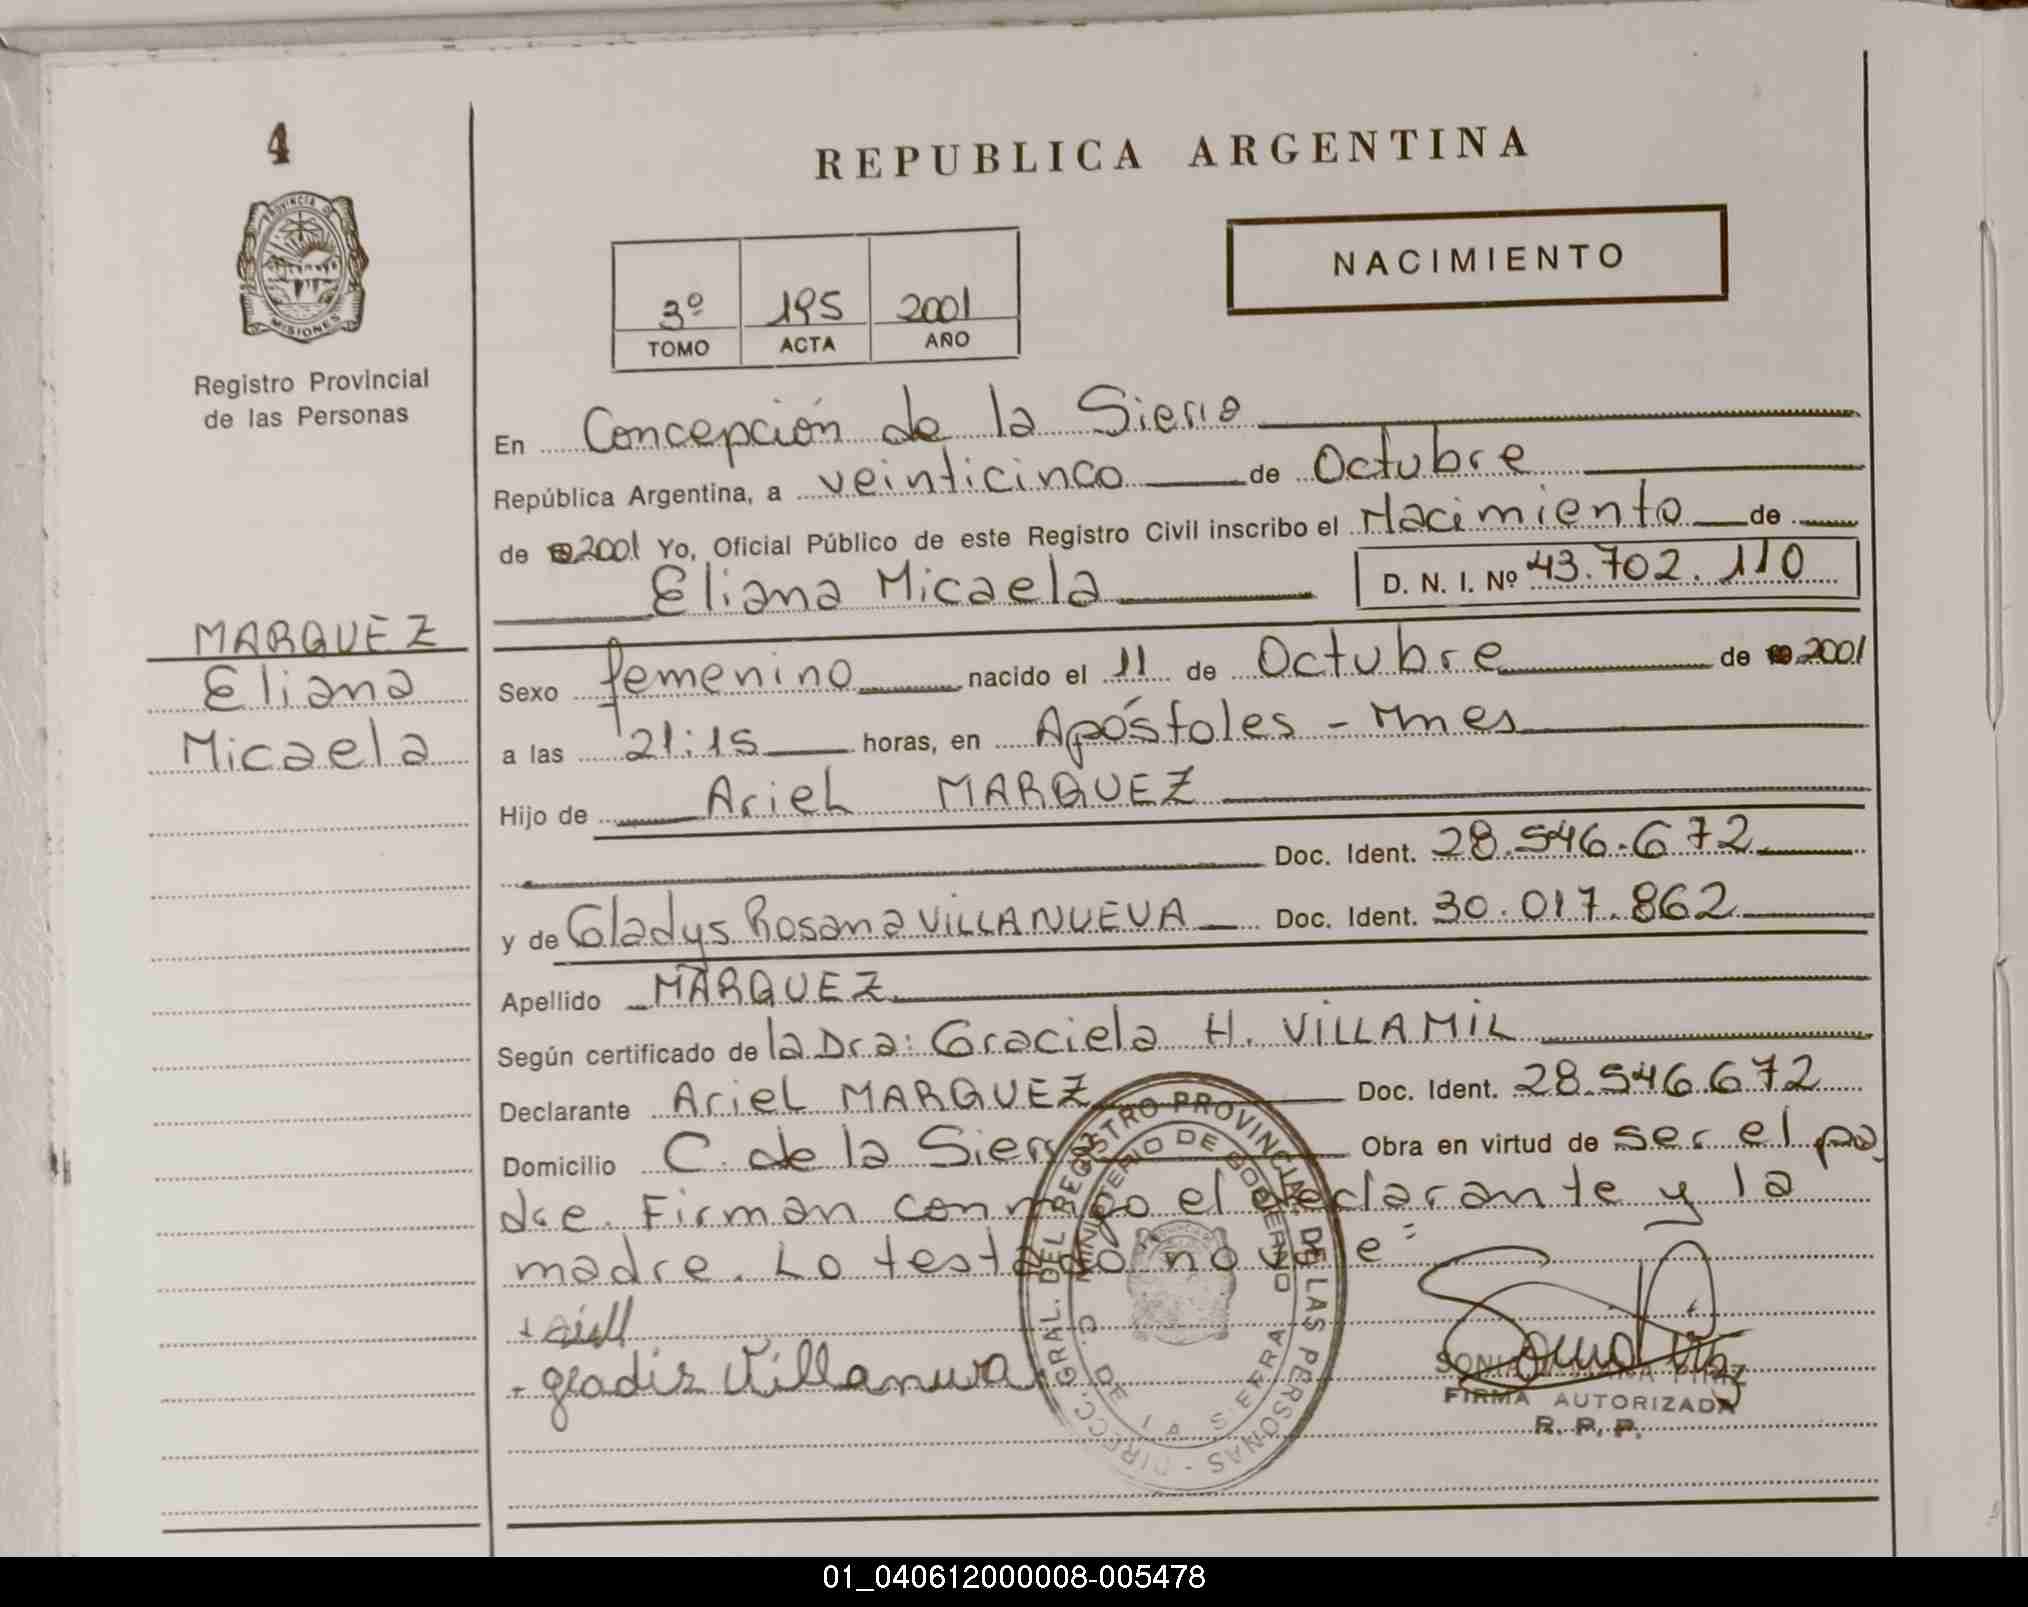 4
PROVINCIA DE
MISIONES
Registro Provincial
de las Personas
MARQUEZ
Eliana
Micaela
REPUBLICA ARGENTINA
NACIMIENTO
3º 195 2001
TOMO ACTA AÑO
En Concepción de la Sierra
República Argentina, a veinticinco de Octubre
de 2001 Yo, Oficial Público de este Registro Civil inscribo el Nacimiento de
Eliana Micaela D. N. I. Nº 43.702.110
Sexo femenino nacido el 11 de Octubre de 2001
a las 21:15 horas, en Apóstoles - Mnes
Hijo de Ariel MARQUEZ
Doc. Ident. 28.546.672
y de Gladys Rosana VILLANUEVA Doc. Ident. 30.017.862
Apellido MARQUEZ
Según certificado de la Dra: Graciela H. VILLAMIL
Declarante Ariel MARQUEZ Doc. Ident. 28.546.672
Domicilio C. de la Sierra Obra en virtud de ser el pa
dre. Firman conmigo el declarante y la
madre. Lo testado "no vale"
gladis Villanueva
DIRECC. GRAL. DEL REGISTRO PROVINCIAL DE LAS PERSONAS
MINISTERIO DE GOBIERNO
C. DE LA SIERRA
SONIA
FIRMA AUTORIZADA
R. P. P.
01_040612000008-005478